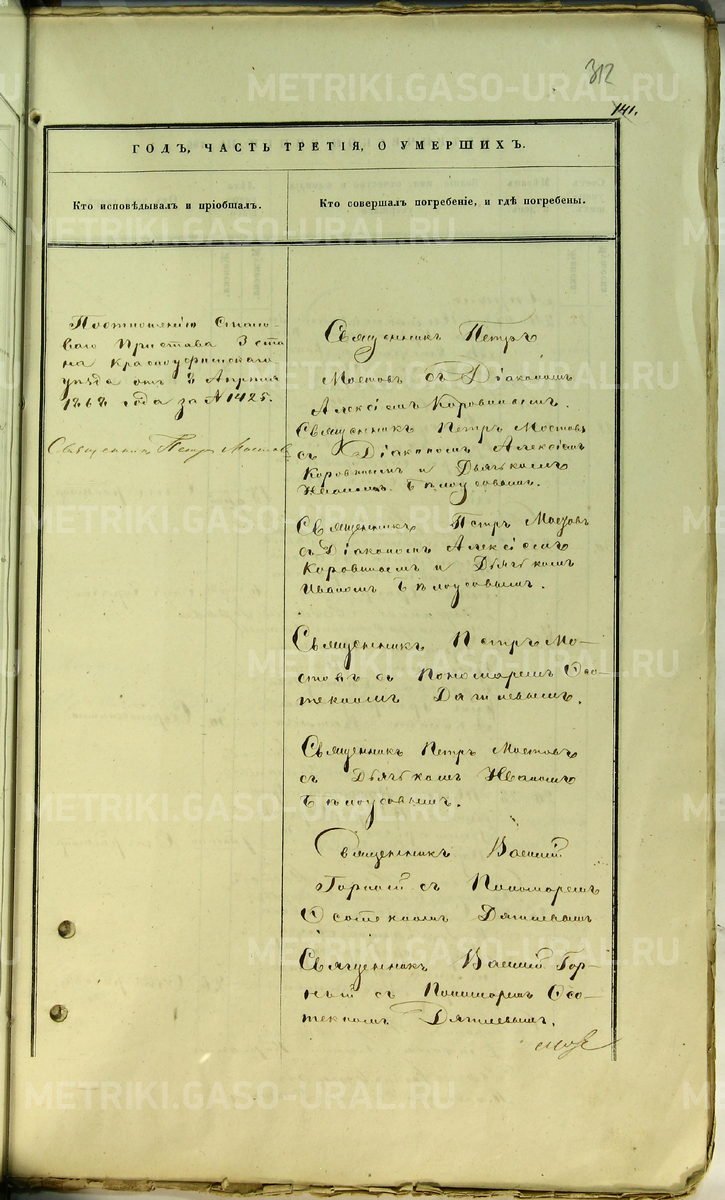 312
141.
ГОДЪ, ЧАСТЬ ТРЕТІЯ, О УМЕРШИХЪ.
Кто исповѣдывалъ и пріобщалъ.
Кто совершалъ погребеніе, и гдѣ погребены.
По отношенію Стано-
ваго Пристава 3 ста
на Красноуфимскаго
уѣзда отъ 8 Апрѣля
1868 года за № 1425.
Священникъ Петръ Мостовъ
Священникъ Петръ
Мостовъ съ Діакономъ
Алексіемъ Коровинымъ.
Священникъ Петръ Мостовъ
съ Діакономъ Алексіемъ
Коровинымъ и Дьячкомъ
Иваномъ Бѣлоусовымъ.
Священникъ Петръ Мостовъ
съ Діакономъ Алексіемъ
Коровинымъ и Дьячкомъ
Иваномъ Бѣлоусовымъ.
Священникъ Петръ Мо-
стовъ съ Пономаремъ
Священникъ Петръ Мостовъ
съ Дьячкомъ Иваномъ
Бѣлоусовымъ.
Священникъ Василій
Горный съ Пономаремъ
Священникъ Василій Гор-
ный съ Пономаремъ
METRIKI.GASO-URAL.RU